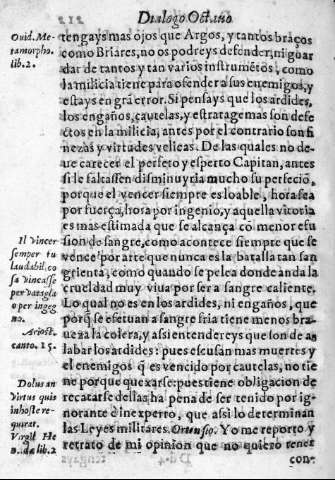 Dialogo Octauo
Ouid. Me-
tamorpho.
lib. 2.
tengays mas ojos que Argos, y tantos braços
como Briares, no os podreys defender, ni guar
dar de tantos y tan varios instrumẽtos, como
la milicia tiene para ofender a sus enemigos, y
estays en grã error. Si pensays que los ardides,
los engaños, cautelas, y estratagemas son defe
ctos en la milicia, antes por el contrario son fi
nezas y virtudes velicas. De las quales no de-
ue carecer el perfeto y esperto Capitan, antes
si le faltassen disminuyria mucho su perfeciõ,
porque el vencer siempre es loable, hora sea
por fuerça, hora por ingenio, y aquella vitoria
es mas estimada que se alcança cõ menor efu
sion de sangre, como acontece siempre que se
vence por arte que nunca es la batalla tan san
grienta, como quando se pelea donde anda la
crueldad muy viua por ser a sangre caliente.
Lo qual no es en los ardides, ni engaños, que
porq̃ se efetuan a sangre fria tiene menos bra-
ueza la colera, y assi entendereys que son de a-
labar los ardides: pues escusan mas muertes y
el enemigos q̃ es vencido por cautelas, no tie
ne porque quexarse: pues tiene obligacion de
recatarse dellas ha pena de ser tenido por ig-
norante e inexperto, que assi lo determinan
las Leyes militares. Ortensio. Yo me reporto y
retrato de mi opinion que no quiero tener
Il vincer
semper fu
laudabil co
sa vincasse
per vatagia
o per inge
no.
Ariost.
canto. 15.
Dolus an
virtus quis
in hoste re-
quirat.
Virgil. He
lib. 2
con-